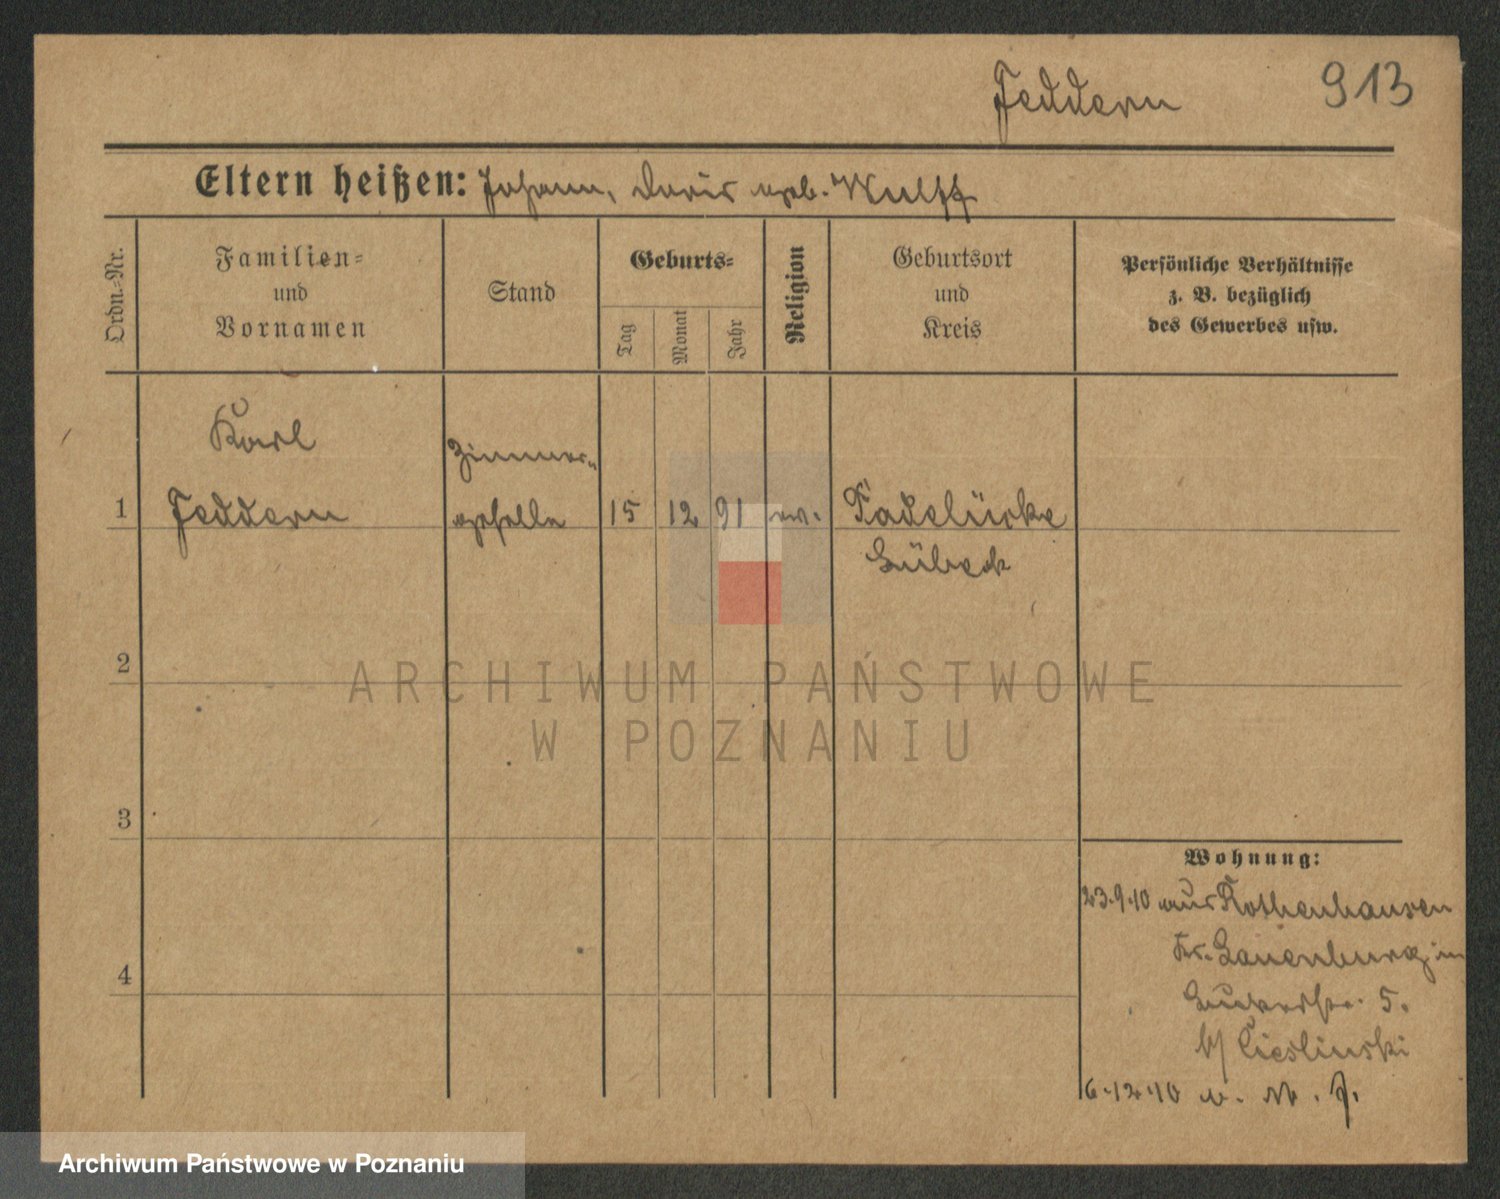 Feddern 913
Eltern heißen: Johann, Doris geb. Wulff
Ordn.-Nr.
Familien-
und
Vornamen
Stand
Geburts-
Tag
Monat
Jahr
Religion
Geburtsort
und
Kreis
Persönliche Verhältnisse
z. B. bezüglich
des Gewerbes usw.
Karl
Zimmer-
1 Feddern geselle 15 12 91 ev. Padelücke
Lübeck
2
ARCHIWUM PAŃSTWOWE
W POZNANIU
3
Wohnung:
23.9.10 aus Rothenhausen
Kr. Lauenburg in
5.
b/ Cieslinski
4
6.12.10 v. N.
Archiwum Państwowe w Poznaniu